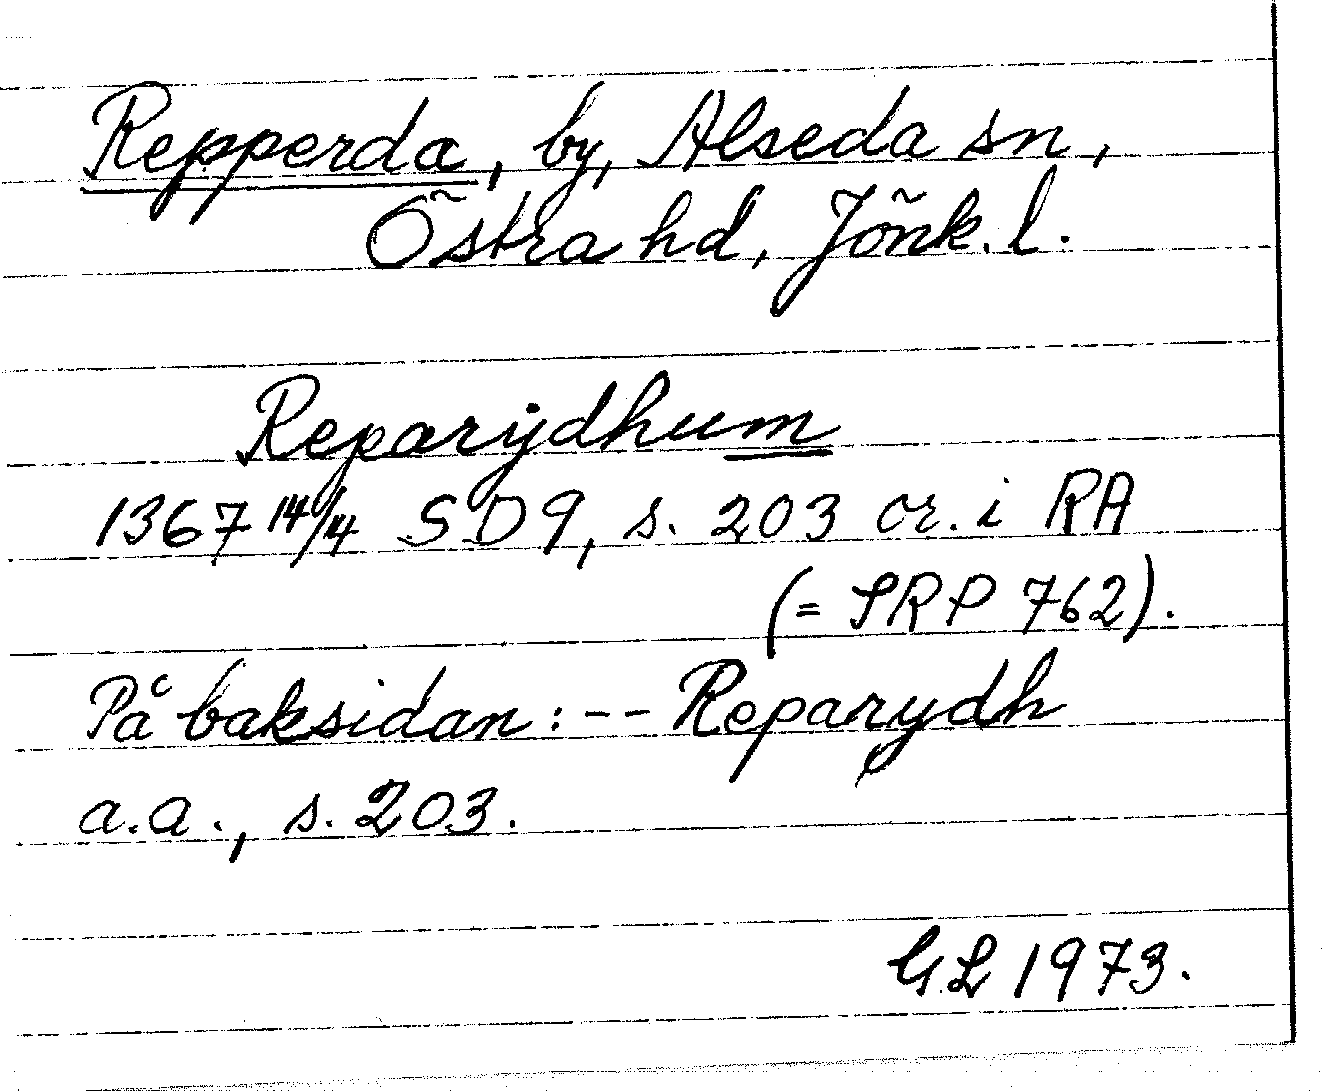 Repperda, by, Alseda sn,
Östra hd, Jönk. l.
Reparydhum
1367 14/4 SD 9, s. 203 or. i RA
(= SRP 762).
På baksidan: -- Reparydh
a.a., s. 203.
GL 1973.